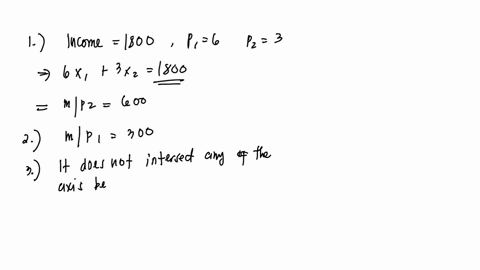 1.) Income = 1800 , P₁ = 6 P₂ = 3
⇒ 6x₁ + 3x₂ = 1800
= m/P2 = 600
2.) m/P₁ = 300
3.) It does not intersect any of the
axis be